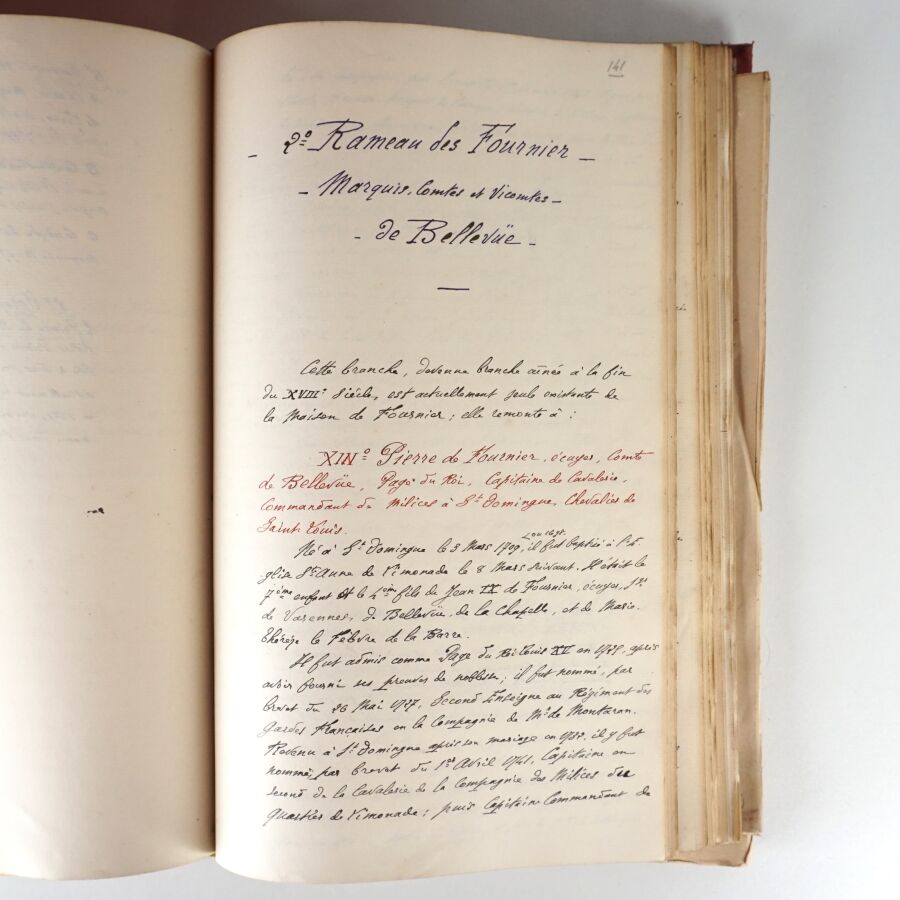 141
- 2º Rameau des Fournier -
- Marquis, Comtes et Vicomtes -
- de Bellevüe -
Cette branche, devenue branche ainée à la fin
du XVIIIe Siècle, est actuellement seule existante de
la Maison de Fournier; elle remonte à :
Pierre de Fournier, écuyer, Comte
de Bellevüe, Page du Roi, Capitaine de Cavalerie,
Commandant de Milices à St Domingue, Chevalier de
Saint-Louis.
Né à St Domingue le 3 Mars 1709, il fut baptisé à l'é-
glise Ste Anne de Limonade le 8 Mars suivant. Il était le
7ème enfant et le 4ème fils de Jean IX de Fournier, écuyer, Sr
de Varennes, de Bellevüe, de la Chapelle, et de Marie-
Thérèze le Febvre de la Barre.
Il fut admis comme Page du Roi Louis XV en après
avoir fourni ses preuves de noblesse; il fut nommé, par
brevet du 26 Mai 1727, Second Enseigne au Régiment des
Gardes Françaises en la Compagnie de Mr de Montaran.
Revenu à St Domingue après son mariage en il y fut
nommé, par brevet du 1er Avril 1741, Capitaine en
second de la Cavalerie de la Compagnie des Milices des
Quartiers de Limonade; puis Capitaine Commandant de